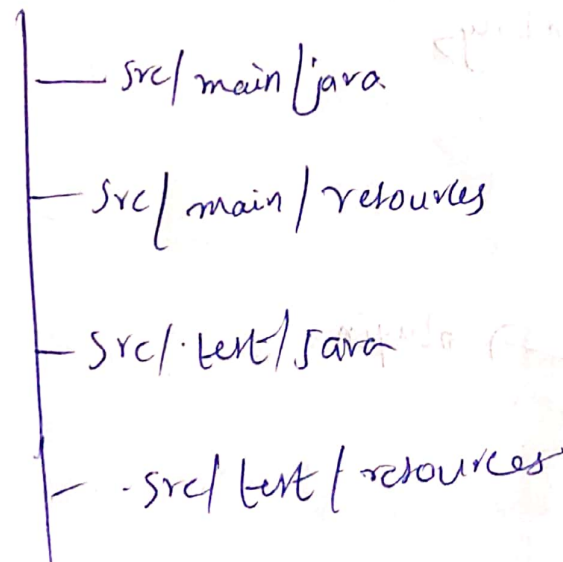 src/main/java
src/main/resources
src/test/java
src/test/resources